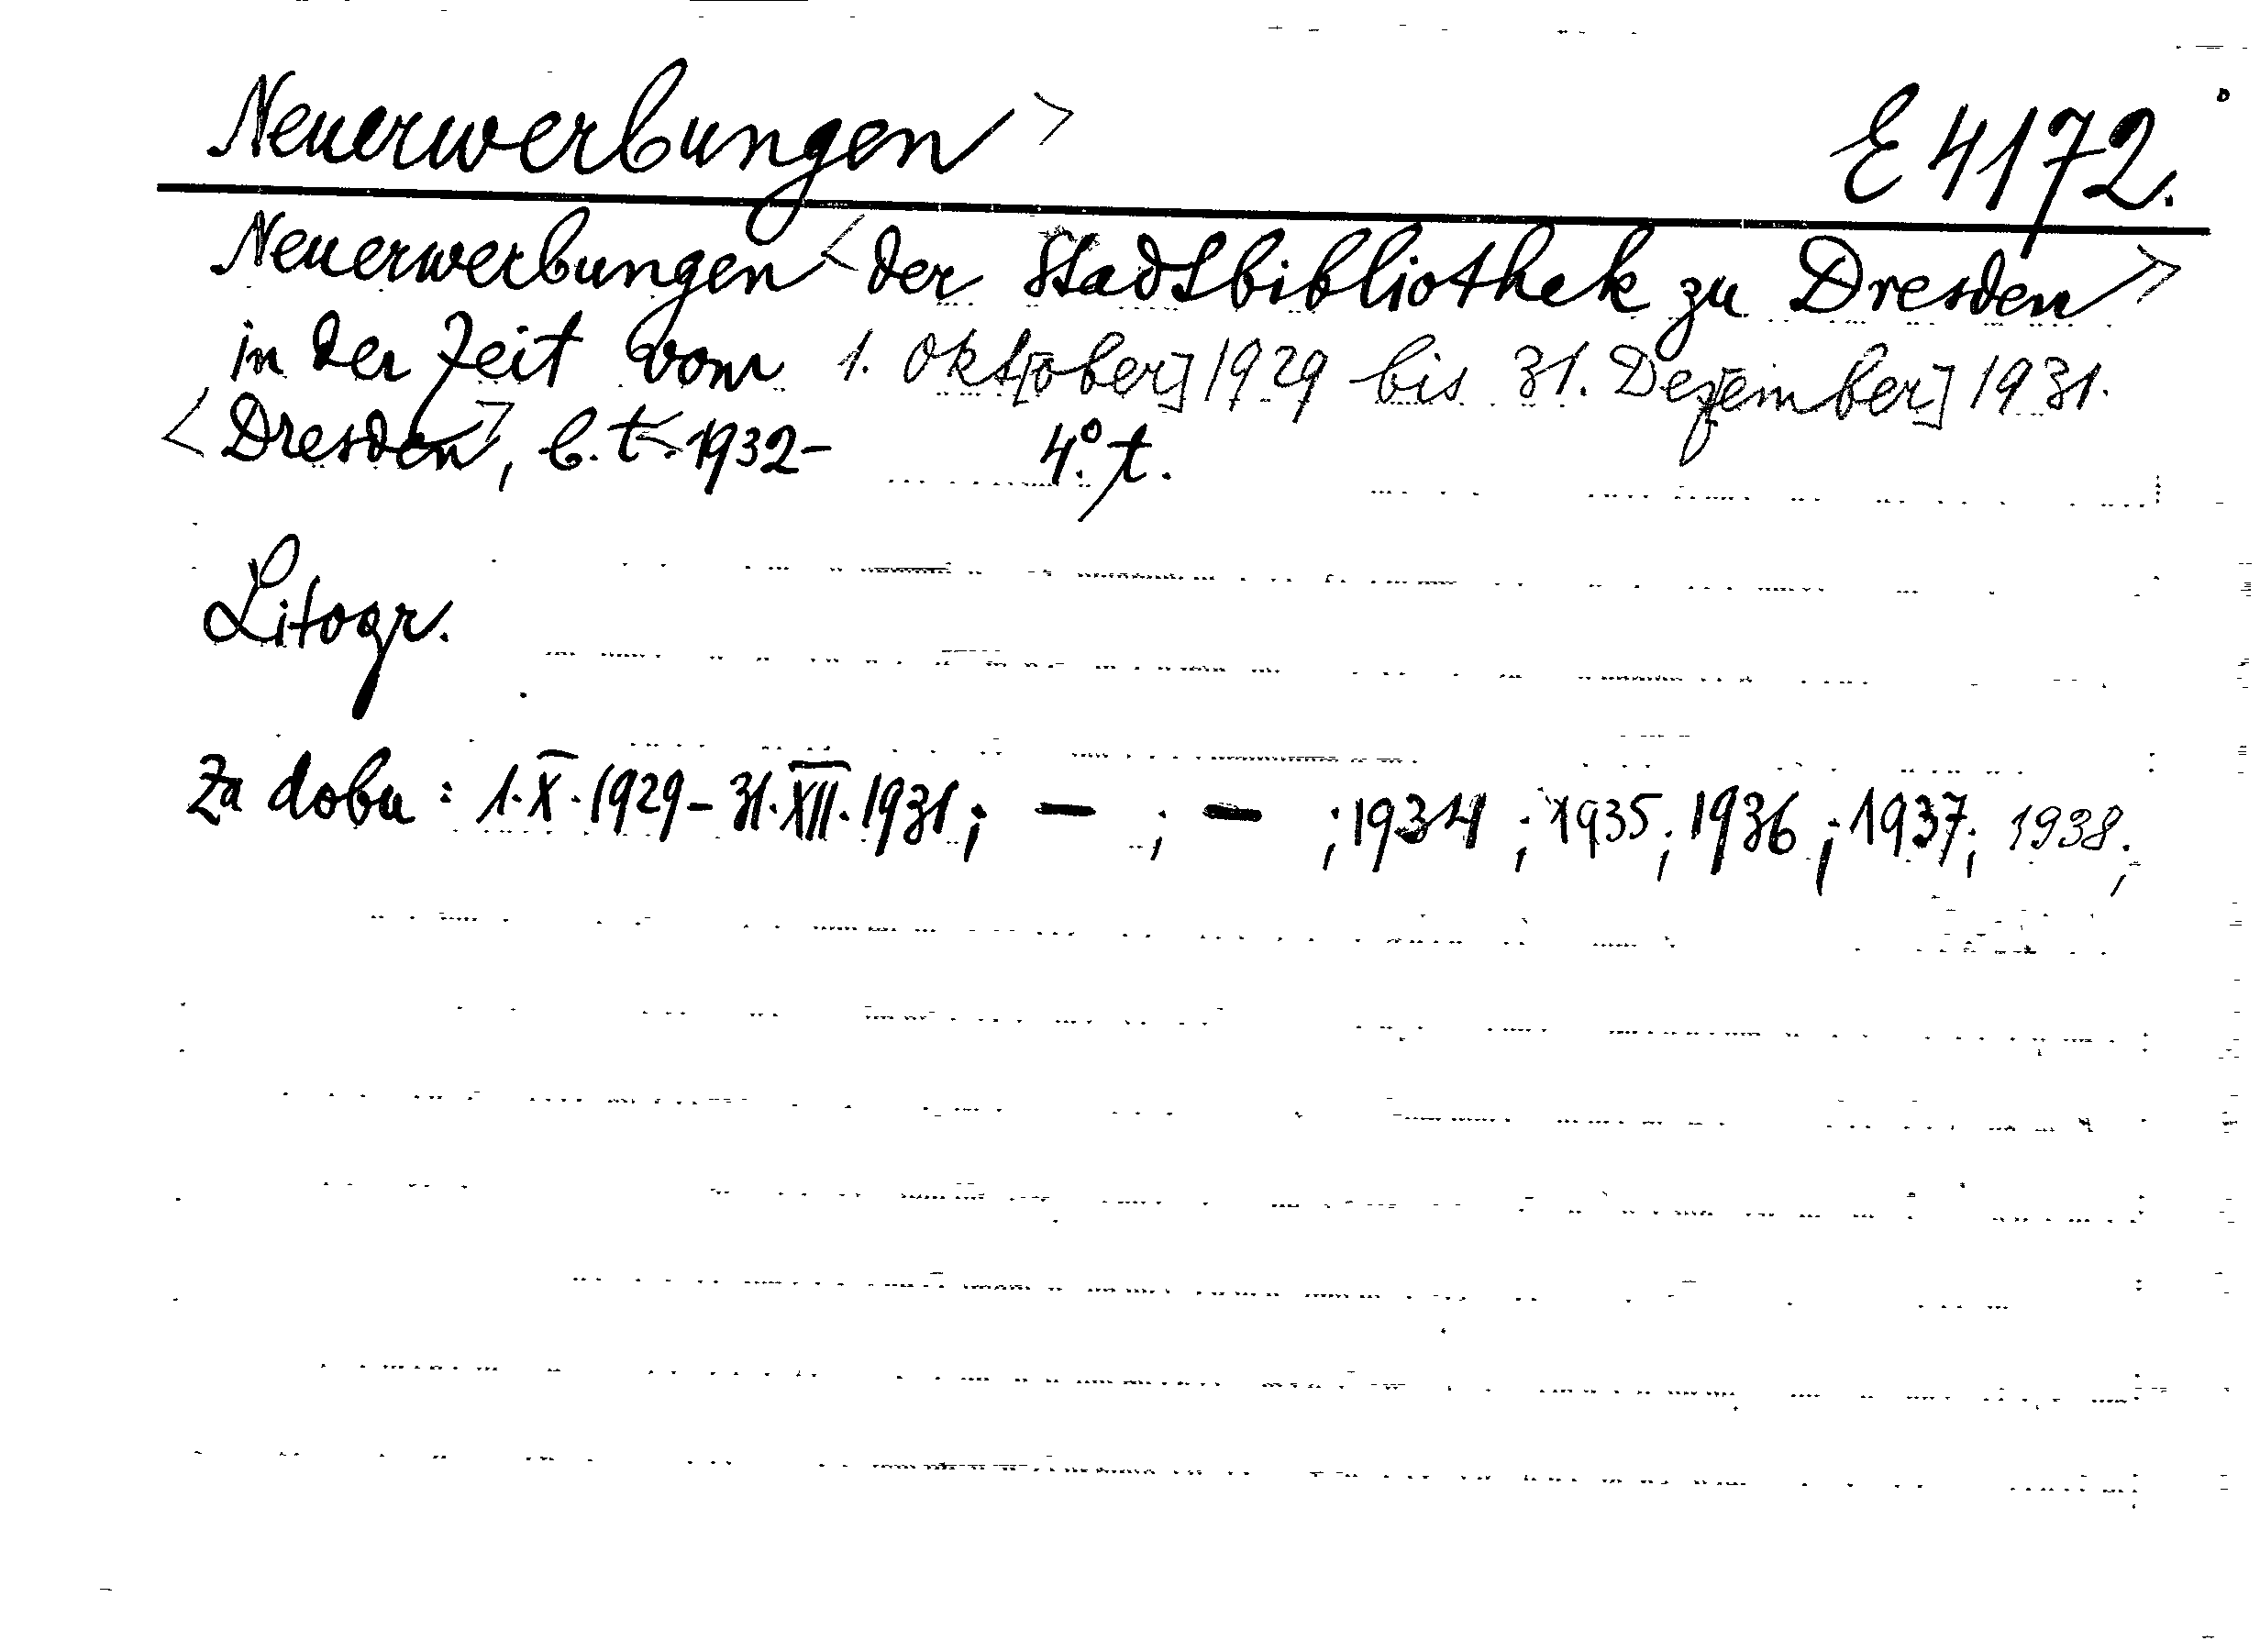 Neuerwerbungen > E 4172.
Neuerwerbungen <der Stadtbibliothek zu Dresden>
in der Zeit vom 1. Okt[ober] 1929 bis 31. Dez[ember] 1931.
<Dresden>, b. t. 1932- 4° t.
Litogr.
Za dobu: 1.X.1929-31.XII.1931; - ; - ; 1934; 1935; 1936; 1937; 1938;